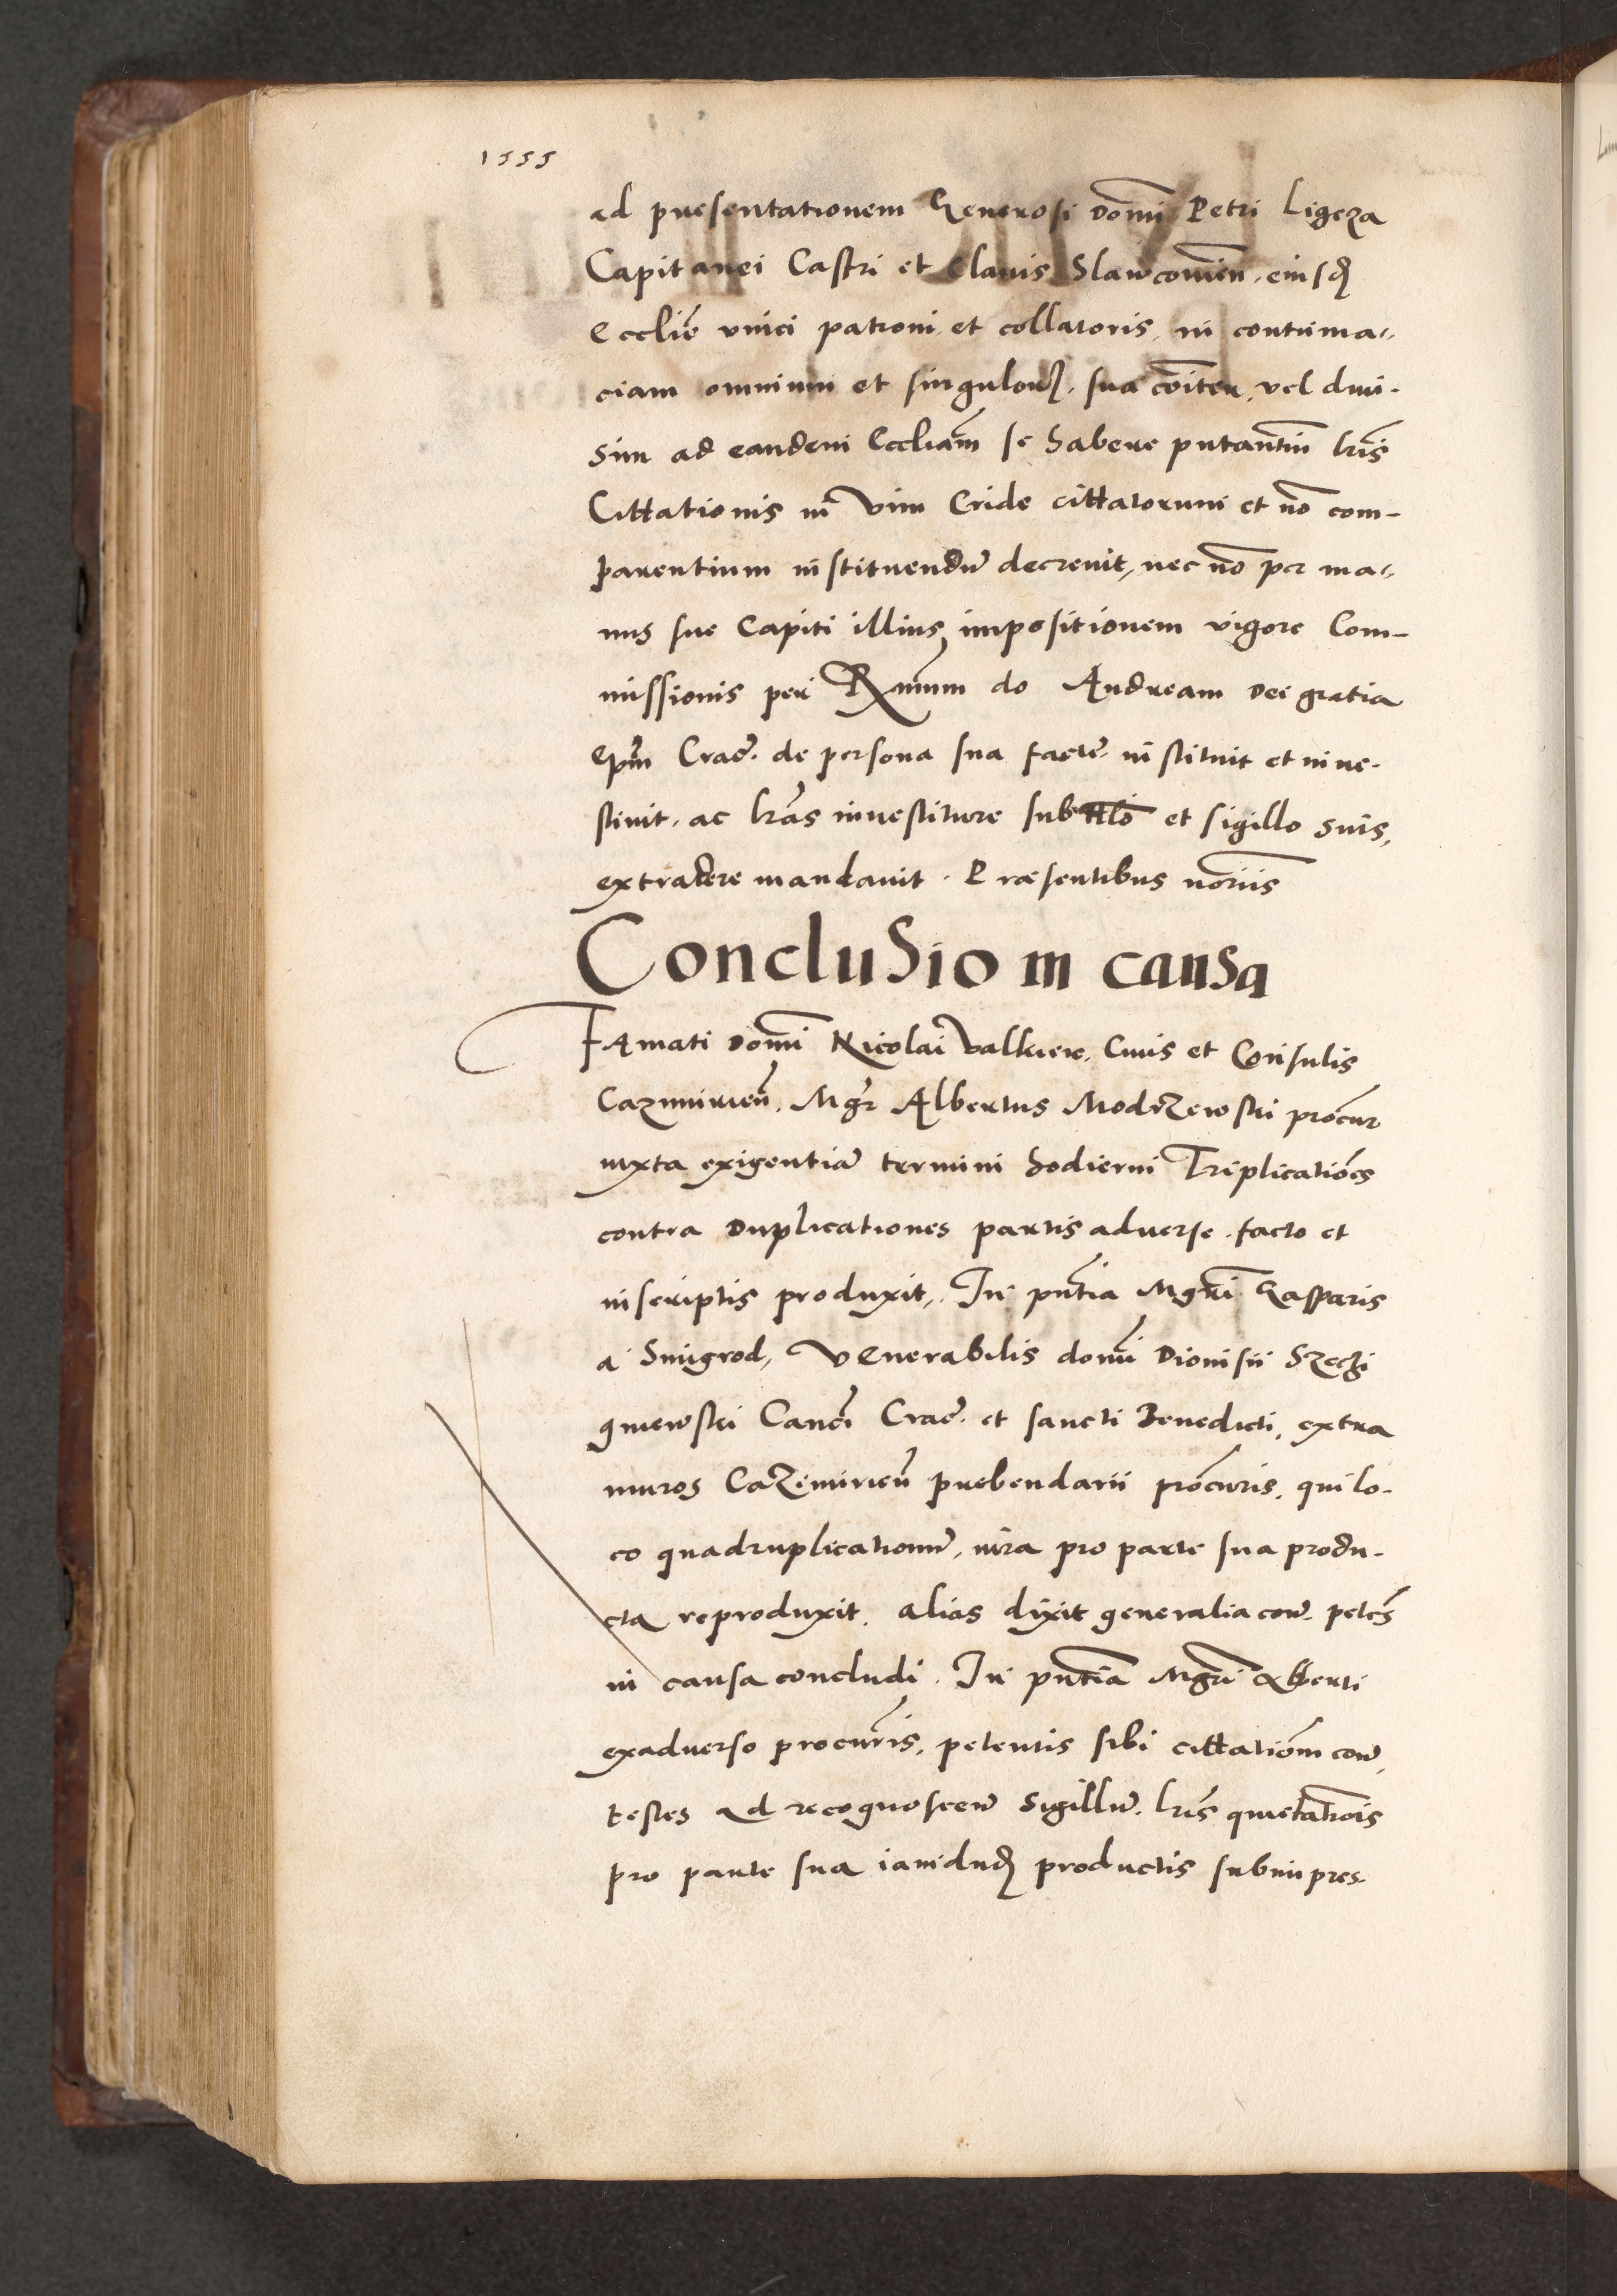 1555
ad presentationem Generosi Domĩ Petri Ligęza
Capitanei Castri et Clauis Slawcouien̄. eiusdʒ
Eccliē vnici patroni et collatoris, in contuma-
ciam omnium et singulorʒ. sua cōiter, vel diui-
sim ad eandem Eccliam̄ se habere putantiū lrīs
Cittationis in vim Cride cittatorum et nō com-
parentium instituendū decreuit, nec nō per ma-
nus sue Capiti illius impositionem vigore Com-
missionis per Rm̄um do Andream Dei gratia
Ep̄m Crac̄. de persona sua factē. instituit et inue-
stiuit, ac lrās inuestiture sub ttlō et sigillo suis,
extradere mandauit. Præsentibus nōriis
Conclusio in causa
FAmati Domĩ Nicolai Valkier, Ciuis et Consulis
Cazimirien̄. Mgr̄ Albertus ModrZewski prōcur
iuxta exigentiā termini hodierni Triplicatiōes
contra Duplicationes partis aduerse. facto et
inscriptis produxit, In pn̄tia Mgr̄i Gasparis
a Smigrod, VEnerabilis domĩ Dionisii SZechi
gniewski Canci̅ Crac̄. et sancti Benedicti, extra
muros CaZimirien̄ prebendarii prōcuris, qui lo-
co quadruplicationū, iura pro parte sua produ-
cta reproduxit. alias dixit generalia con̄. petēs
in causa concludi. In pn̄tia Mgr̄i Alberti
exaduerso procurīs, petentis sibi cittatiōm con̄,
testes ad recognoscen̄ sigillū. lrīs quietatiōis
pro parte sua iamdudʒ productis subimpres-